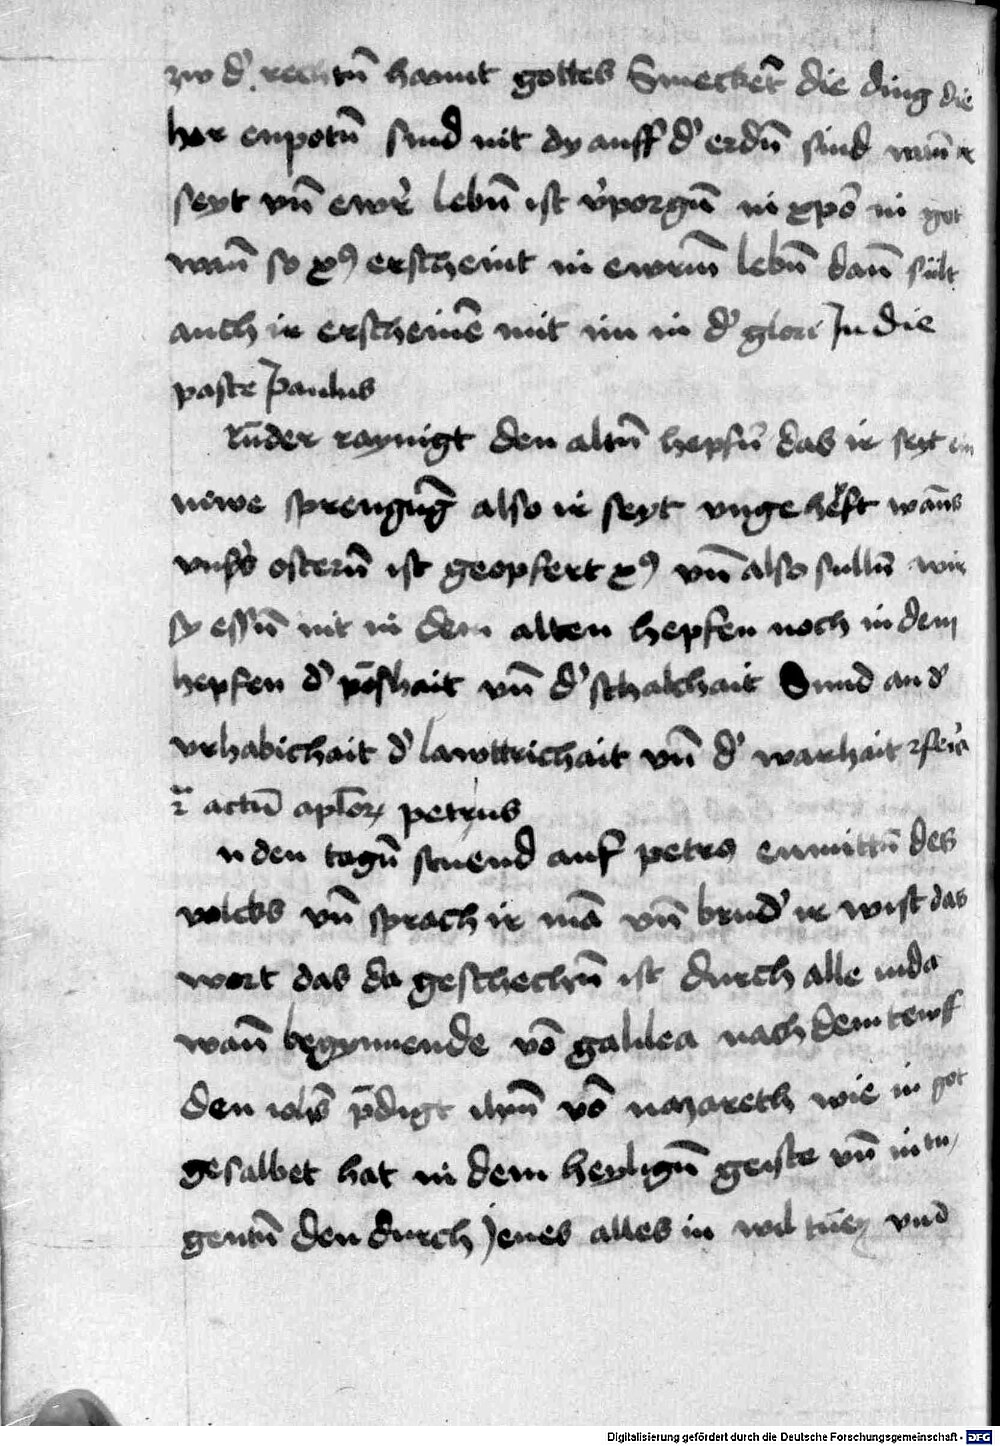 zw d' rechtñ hannt gottes Smecket̃ die ding die
her enpotñ sind nit dy auff d' erdñ sind wañ ir
seyt vñ ewr̃ lebñ ist v'porgñ in xpõ in got
wañ so xꝰ erscheint in ewrm̃ lebñ dañ sült
auch ir erscheinẽ mit im in d' glori In die
pasce Paulus
rũder raynigt den altñ hepfñ das ir seyt ein
newe sprengũg also ir seyt vngeheft wañs
vns's osterñ ist geopfert xꝰ vñ also sullñ wir
sy essñ nit in dem alten hepfen noch in dem
hepfen d' põshait vñ d' schalchait Sund an d'
vrhabichait d' lawttrichait vñ d' warhait feria
actũ aplor petrus
n den tagñ stuend auf petrs enmittñ des
volcks vñ sprach ir mã vñ brud' ir wist das
wort das da geschechñ ist durch alle iuda
wañ begynnende võ galilea nach dem tewff
den iohs̃ p̃digt ihm̃ võ nazareth wie in got
gesalbet hat in dem heyligñ geiste vñ in tu
gentñ den durch jenes alles in wol tũn vnd